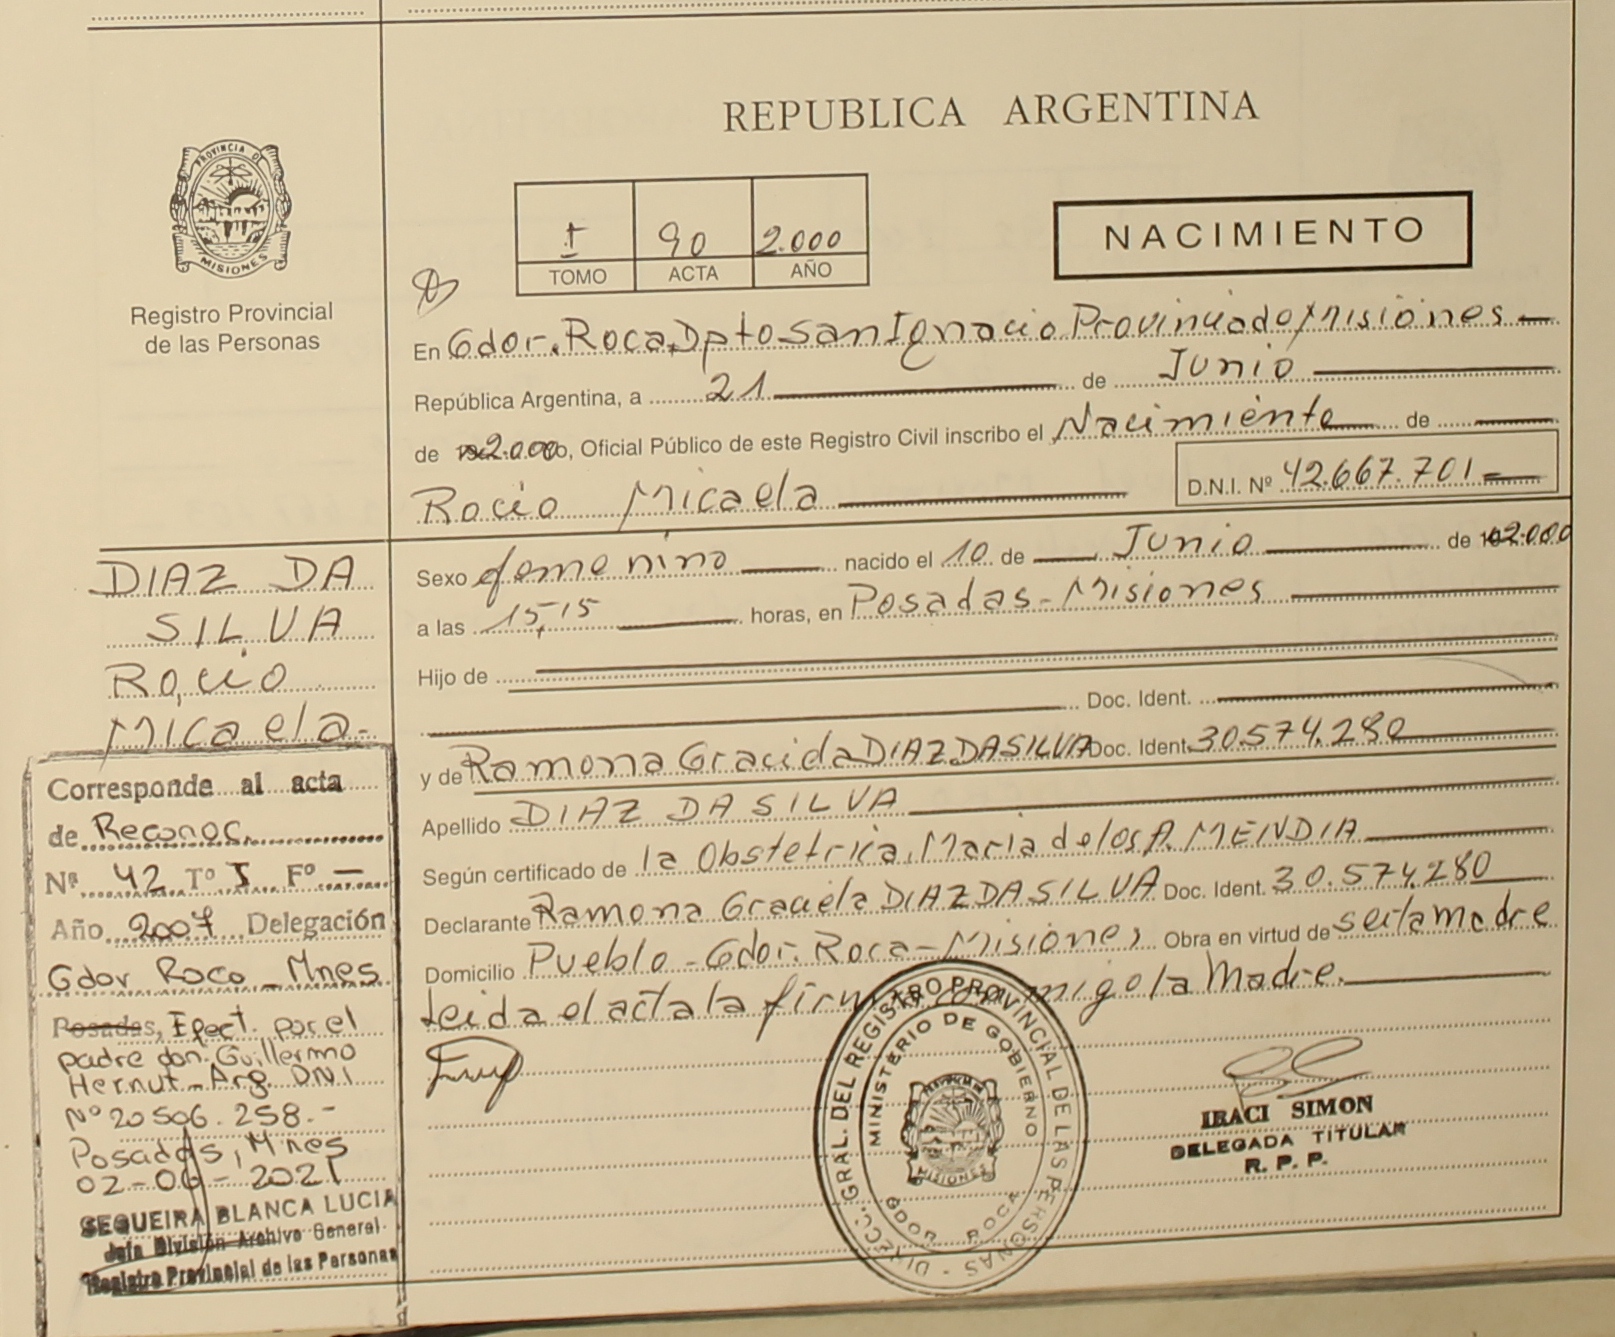 REPUBLICA ARGENTINA
PROVINCIA DE
MISIONES
Registro Provincial
de las Personas
I 90 2.000
TOMO ACTA AÑO
NACIMIENTO
En Gdor. Roca Dpto San Ignacio Provincia de Misiones
República Argentina, a 21 de Junio
de 2.000, Oficial Público de este Registro Civil inscribo el Nacimiento de
Rocio Micaela D.N.I. Nº 42.667.701
DIAZ DA
SILVA
Rocio
Micaela-
Sexo femenino nacido el 10 de Junio de 2.000
a las 15,15 horas, en Posadas - Misiones
Hijo de
Doc. Ident.
y de Ramona Gracida DIAZ DA SILVA Doc. Ident. 30.574.280
Apellido DIAZ DA SILVA
Según certificado de la Obstetrica, Maria de los A. MENDIA
Declarante Ramona Graciela DIAZ DA SILVA Doc. Ident. 30.574.280
Domicilio Pueblo - Gdor. Roca - Misiones Obra en virtud de ser la madre
Leida el acta la firma conmigo la Madre.
Corresponde al acta
de Reconoc.
Nº 42 Tº I Fº —
Año 2007 Delegación
Gdor Roca - Mnes
Posadas, Efect. por el
padre don. Guillermo
Hernut - Arg. DNI
Nº 20506.258.-
Posadas, Mnes
02-06-2021
SEQUEIRA BLANCA LUCIA
Jefa División Archivo General
Registro Provincial de las Personas
DIRECC. GRAL. DEL REGISTRO PROVINCIAL DE LAS PERSONAS -
MINISTERIO DE GOBIERNO
MISIONES
GDOR ROCA
IRACI SIMON
DELEGADA TITULAR
R. P. P.